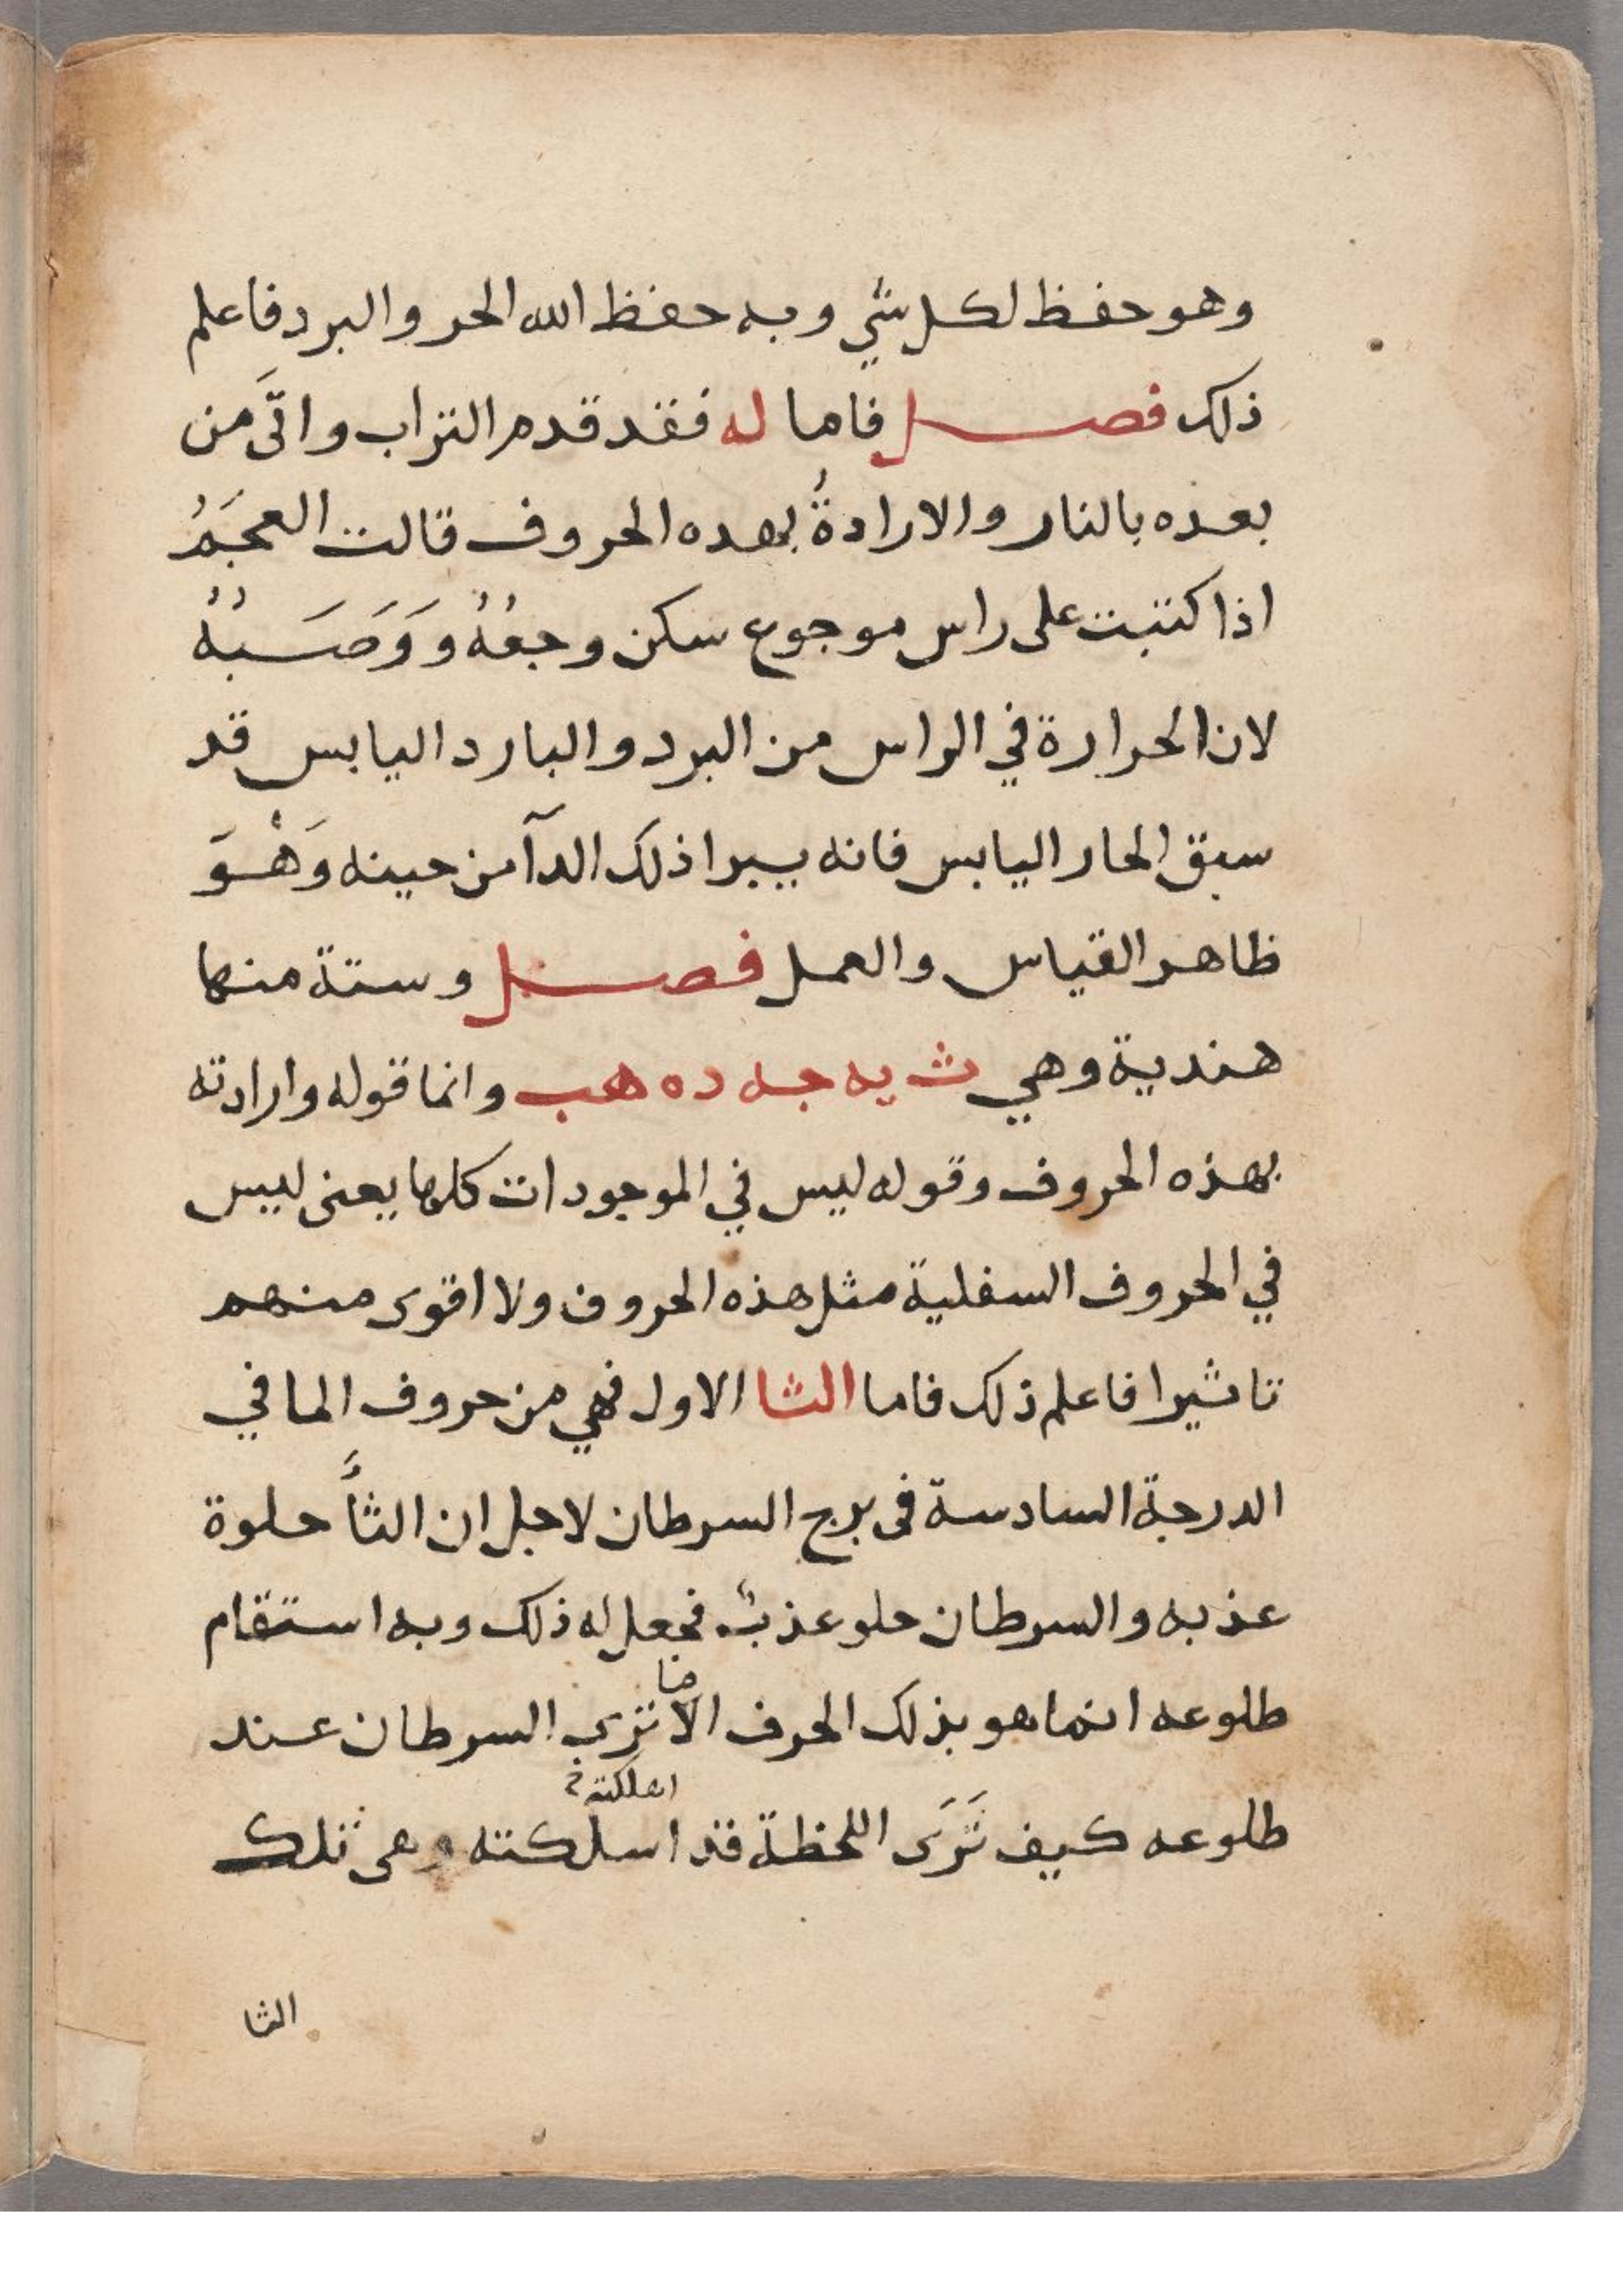 وهو حفظ لكل شي وبه حفظ الله الحر والبرد فاعلم
ذلك فصل فاما له فقد قدم التراب واتَّى من
بعده بالنار والارادةُ بهده الحروف قالت العجَمُ
اذا كتبت على راس موجوع سكن وجعُهُ ووَصَبُهُ
لان الحرارة في الراس من البرد والبارد اليابس قد
سبق الحار اليابس فانه يبرا ذلك الدآ من حينه وَهْوَ
ظاهر القياس والعمل فصل وستة منها
هندية وهي ث يه جه ده هب وانما قوله وارادته
بهذه الحروف وقوله ليس في الموجودات كلها يعنى ليس
في الحروف السفلية مثل هذه الحروف ولا اقوى منهم
تاثيرا فاعلم ذلك فاما الثا الاول فهي من حروف الما في
الدرجة السادسة فى برج السرطان لاجل ان الثآَ حلوة
عذبه والسرطان حلو عذب فجعل له ذلك وبه استقام
طلوعه انما هو بذلك الحرف الا ترى السرطان عند
طلوعه كيف تَرَى اللحظة قد اسلكته وهى تلك
اهلكته
الثا